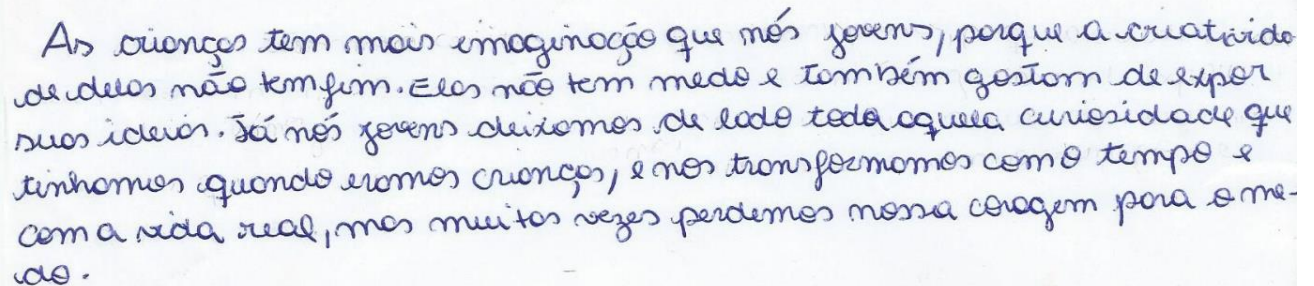 As crianças tem mais emaginação que nós jovens, porque a criativida
de delas não tem fim. Elas não tem medo e também gostam de expor
suas ideias. Já nós jovens deixamos de lado toda aquela curiosidade que
tinhamos quando eramos crianças, e nos transformamos com o tempo e
com a vida real, mas muitas vezes perdemos nossa coragem para o me-
do.